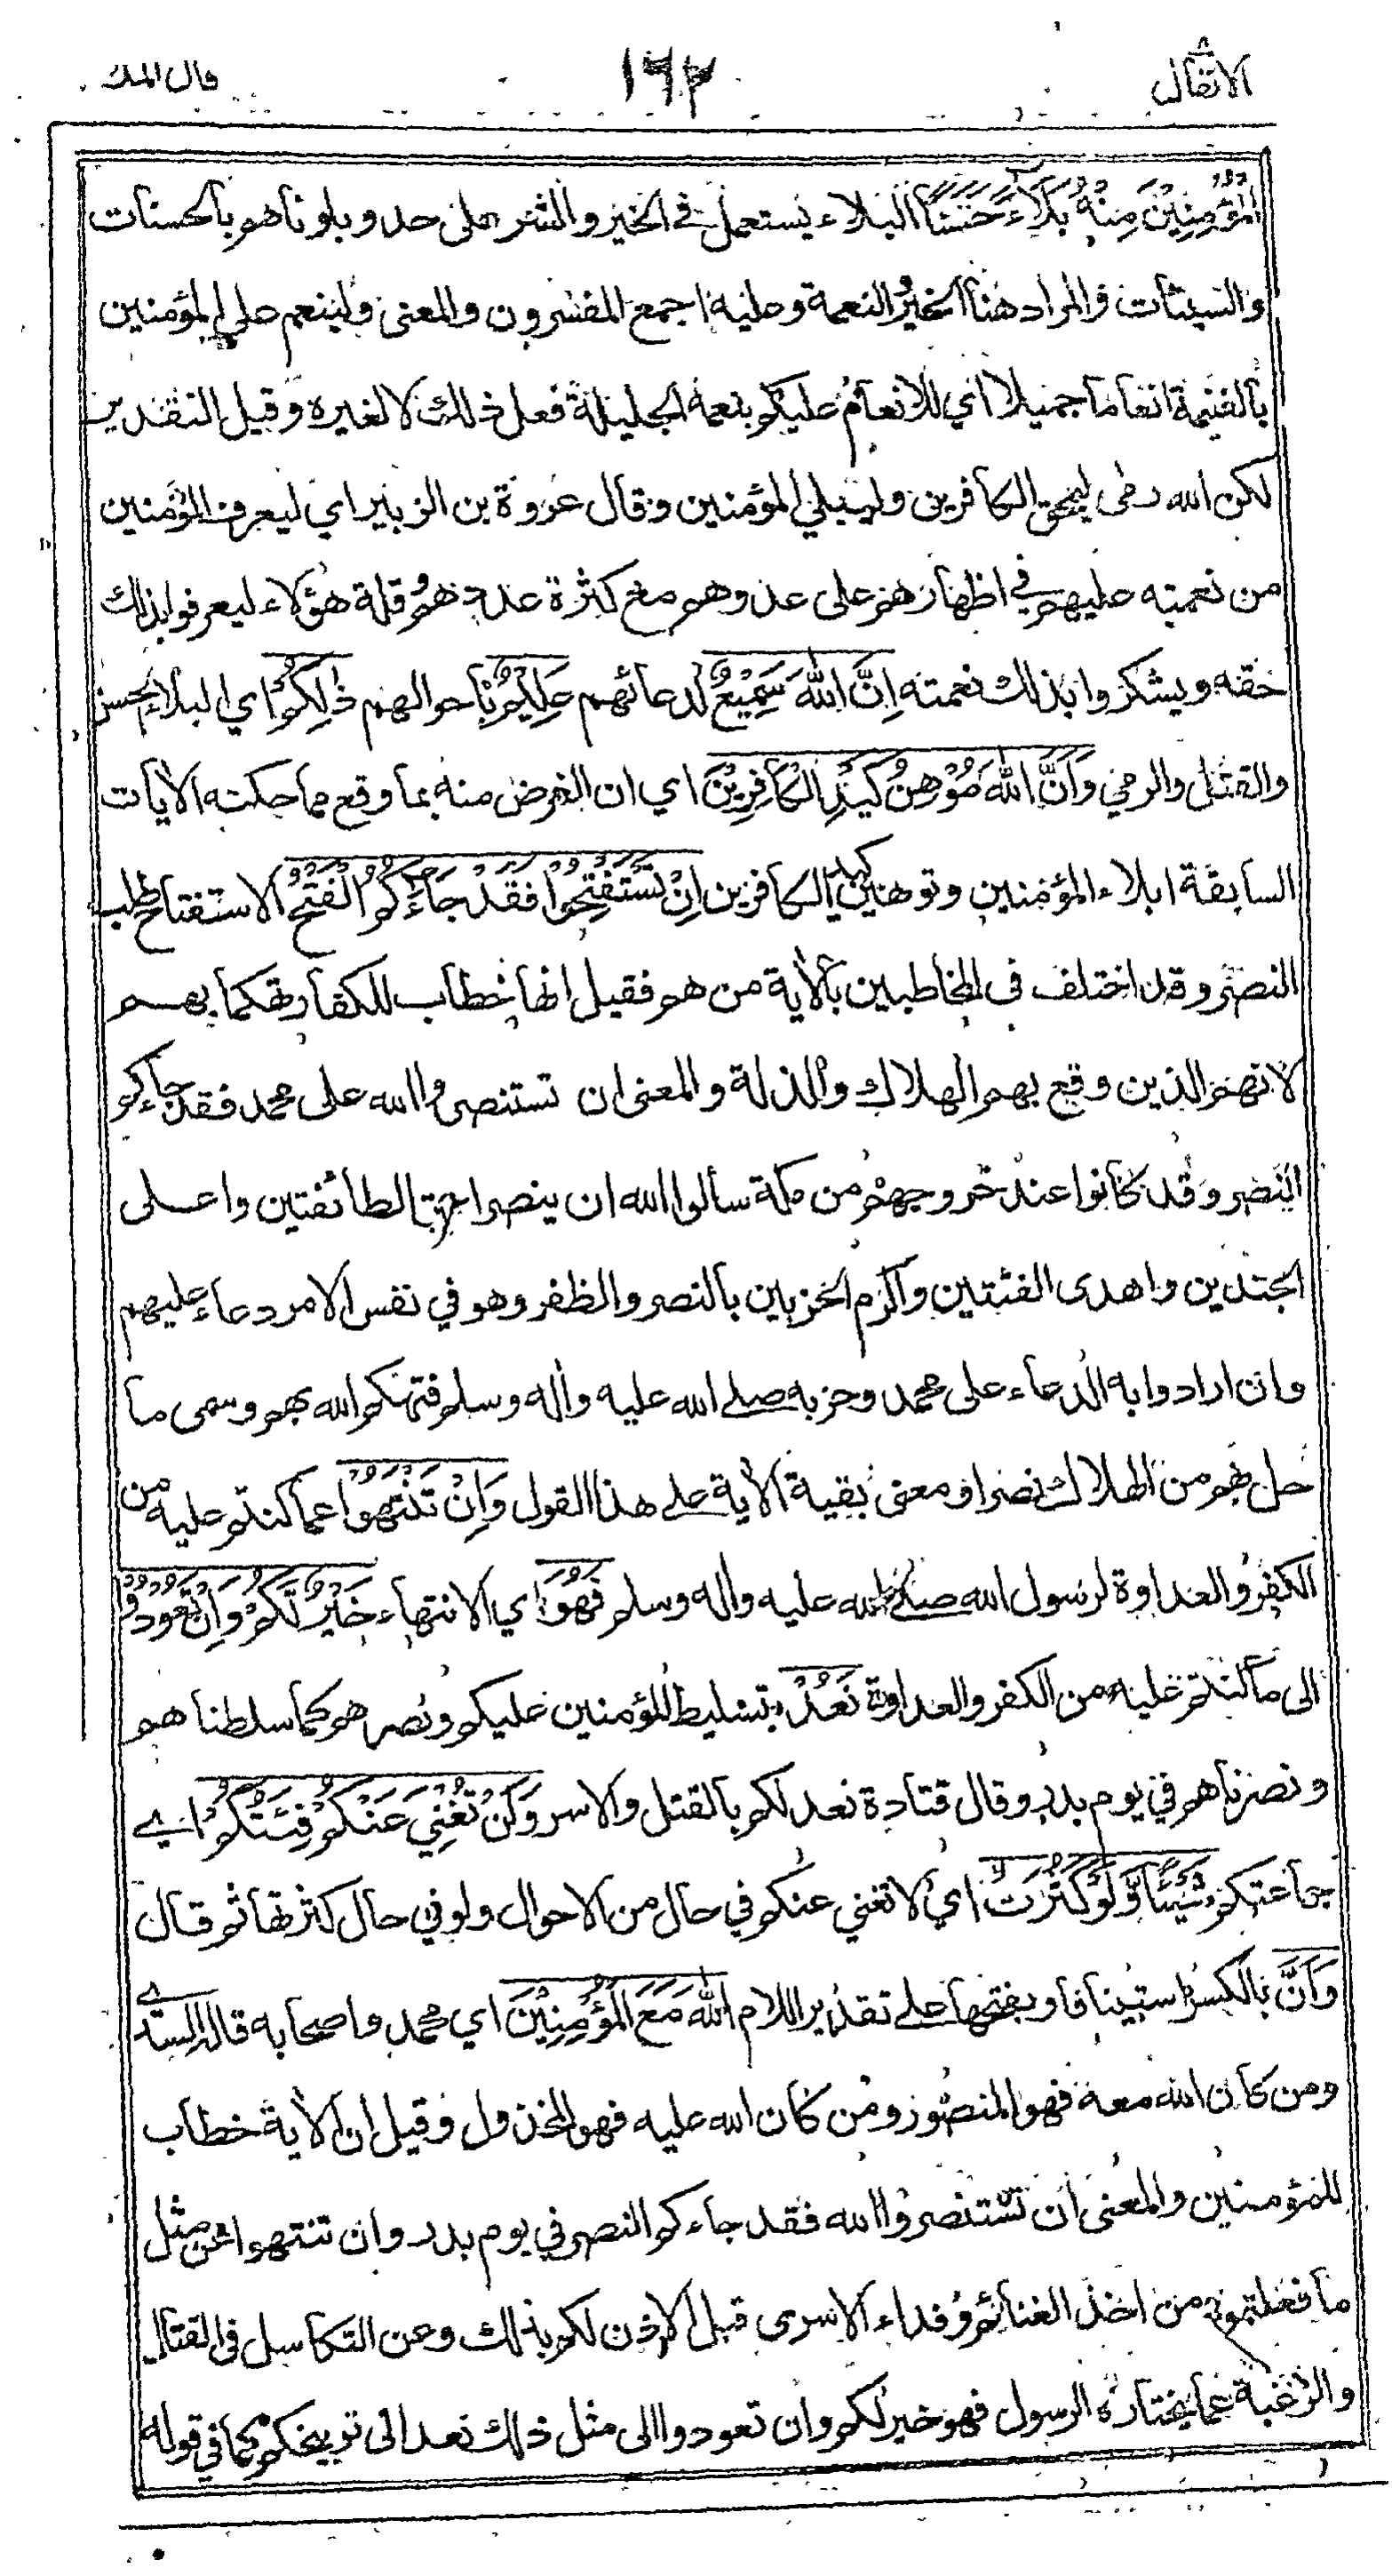 الانفال ١٦٢ قال الملا
الْمُؤْمِنِيْنَ مِنْهُ بَلَاءً حَسَنًا البلاء يستعمل في الخير والشر على حد وبلوناهم بالحسنات
والسيئات والمراد هنا الخير والنعمة وعليه اجمع المفسرون والمعنى ولينعم على المؤمنين
بالغنيمة انعاما جميلا اي للانعام عليكم بنعمه الجليلة فعل ذلك لا لغيره وقيل التقدير
لكن الله رمى ليمحق الكافرين وليبلي المؤمنين وقال عروة بن الزبير اي ليعرف المؤمنين
من نعمته عليهم في اظهارهم على عدوهم مع كثرة عددهم وقلة هؤلاء ليعرفوا بذلك
حقه ويشكروا بذلك نعمته اِنَّ اللهَ سَمِيْعٌ لدعائهم عَلِيْمٌ باحوالهم ذٰلِكُمْ اي البلاء الحسن
والقتل والرمي وَاَنَّ اللهَ مُوْهِنُ كَيْدِ الْكَافِرِيْنَ اي ان الغرض منه بما وقع مما حكته الآيات
السابقة ابلاء المؤمنين وتوهين كيد الكافرين اِنْ تَسْتَفْتِحُوْا فَقَدْ جَاءَكُمُ الْفَتْحُ الاستفتاح طلب
النصر وقد اختلف في المخاطبين بالآية من هم فقيل انها خطاب للكفار تهكما بهم
لانهم الذين وقع بهم الهلاك والذلة والمعنى ان تستنصروا الله على محمد فقد جاءكم
النصر وقد كانوا عند خروجهم من مكة سألوا الله ان ينصر احق الطائفتين واعلى
الجندين واهدى الفئتين واكرم الحزبين بالنصر والظفر وهو في نفس الامر دعاء عليهم
وان ارادوا به الدعاء على محمد وحزبه صلى الله عليه وآله وسلم فتهكم الله بهم وسمى ما
حل بهم من الهلاك نصرا ومعنى بقية الآية على هذا القول وَاِنْ تَنْتَهُوْا عما كنتم عليه من
الكفر والعداوة لرسول الله صلى الله عليه وآله وسلم فَهُوَ اي الانتهاء خَيْرٌ لَّكُمْ وَاِنْ تَعُوْدُوْا
الى ما كنتم عليه من الكفر والعداوة نَعُدْ بتسليط المؤمنين عليكم ونصرهم كما سلطناهم
ونصرناهم في يوم بدر وقال قتادة نعد لكم بالقتل والاسر وَلَنْ تُغْنِيَ عَنْكُمْ فِئَتُكُمْ اي
جماعتكم شَيْئًا وَّلَوْ كَثُرَتْ اي لا تغني عنكم في حال من الاحوال ولو في حال كثرتها ثم قال
وَاَنَّ بالكسر استينافا وبفتحها على تقدير اللام اللهَ مَعَ الْمُؤْمِنِيْنَ اي محمد واصحابه قاله السدي
ومن كان الله معه فهو المنصور ومن كان الله عليه فهو المخذول وقيل ان الآية خطاب
للمؤمنين والمعنى ان تستنصروا الله فقد جاءكم النصر في يوم بدر وان تنتهوا عن مثل
ما فعلتموه من اخذ الغنائم وفداء الاسرى قبل الاذن لكم بذلك وعن التكاسل في القتال
والرغبة عما يختاره الرسول فهو خير لكم وان تعودوا الى مثل ذلك نعد الى توبيخكم كما في قوله